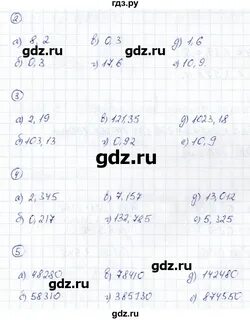 гдз.ру
②
а) 8,2 в) 0,3 д) 1,6
б) 0,3 г) 12,6 е) 10,9
③
а) 2,19 в) 121,35 д) 1023,18
б) 103,13 г) 0,92 е) 10,9
④
а) 2,345 в) 7,157 д) 13,012
б) 0,217 г) 132,725 е) 5,325
⑤
а) 48280 в) 78410 д) 142480
б) 58310 г) 365130 е) 874550
gdz.ru
gdz.ru
gdz.ru
gdz.ru
gdz.ru
gdz.ru